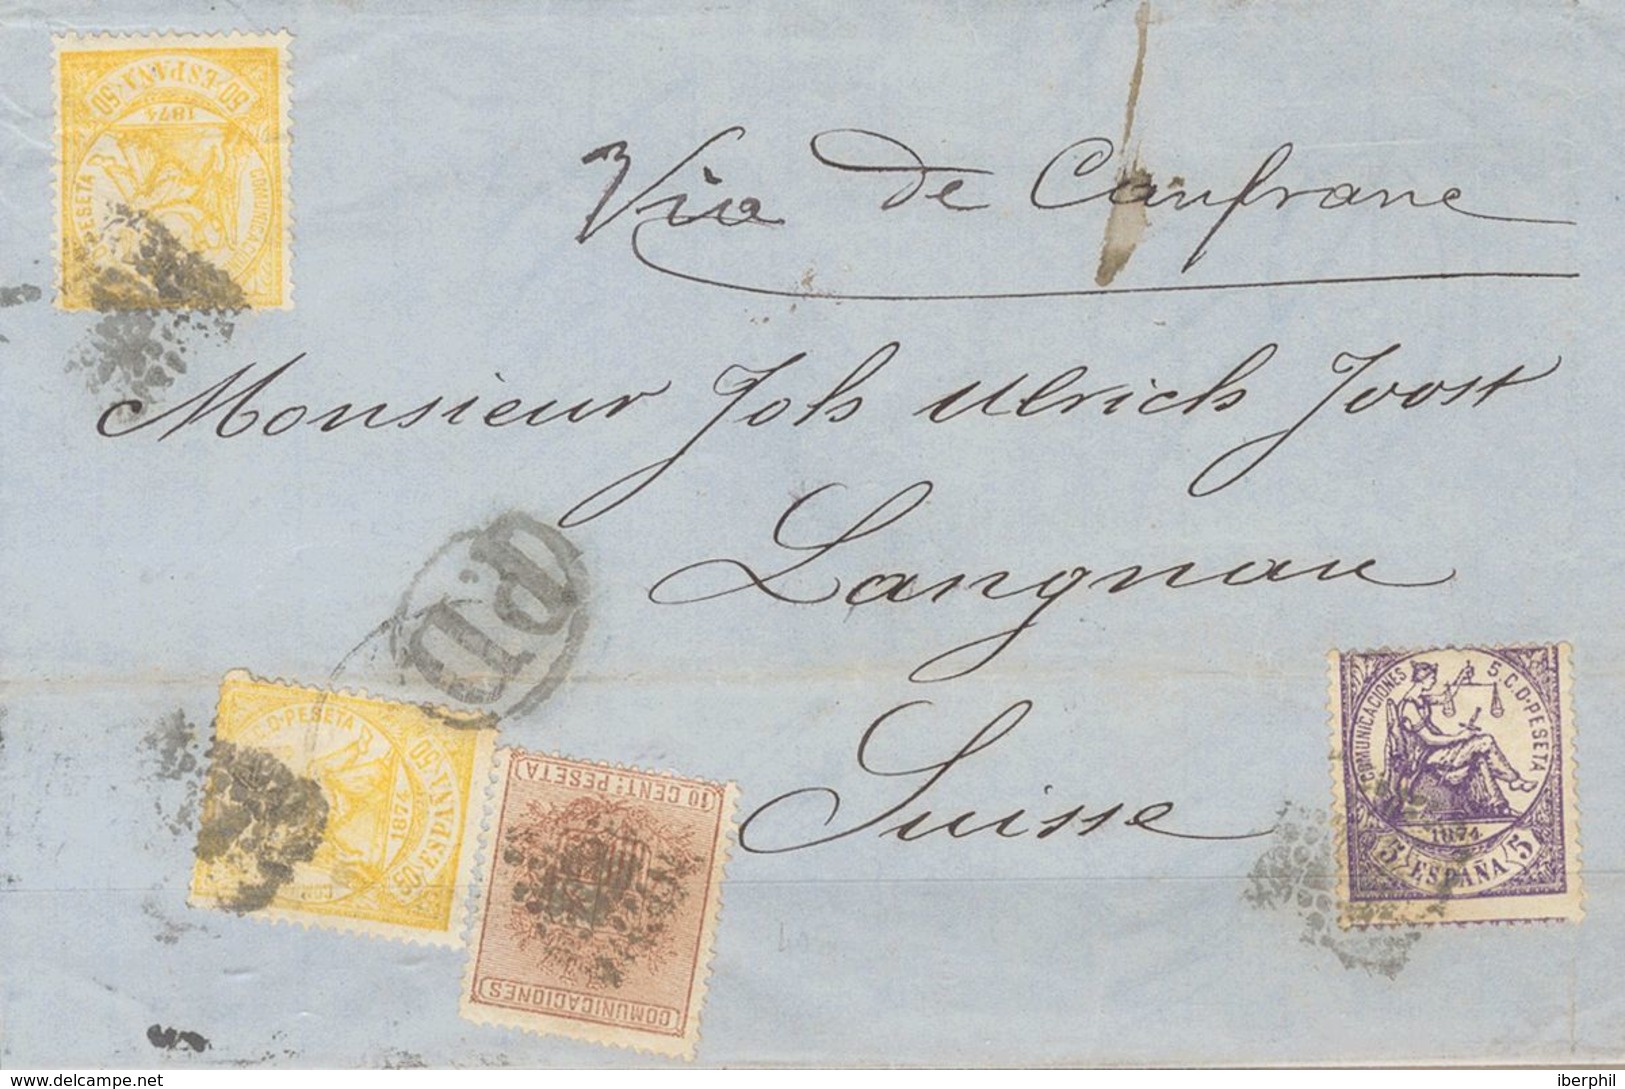 50 ESPAÑA 50
1874
COMUNICACION
PESETA
Via de Canfranc
Monsieur Joh Ulrich Joost
Langnau
Suisse
P.D
D. PESETA
1874
50 ESPAÑA 50
COM
10 CENT. PESETA
COMUNICACIONES
COMUNICACIONES 5. C. D. PESETA
1874
5 ESPAÑA 5
www.delcampe.net
iberphil